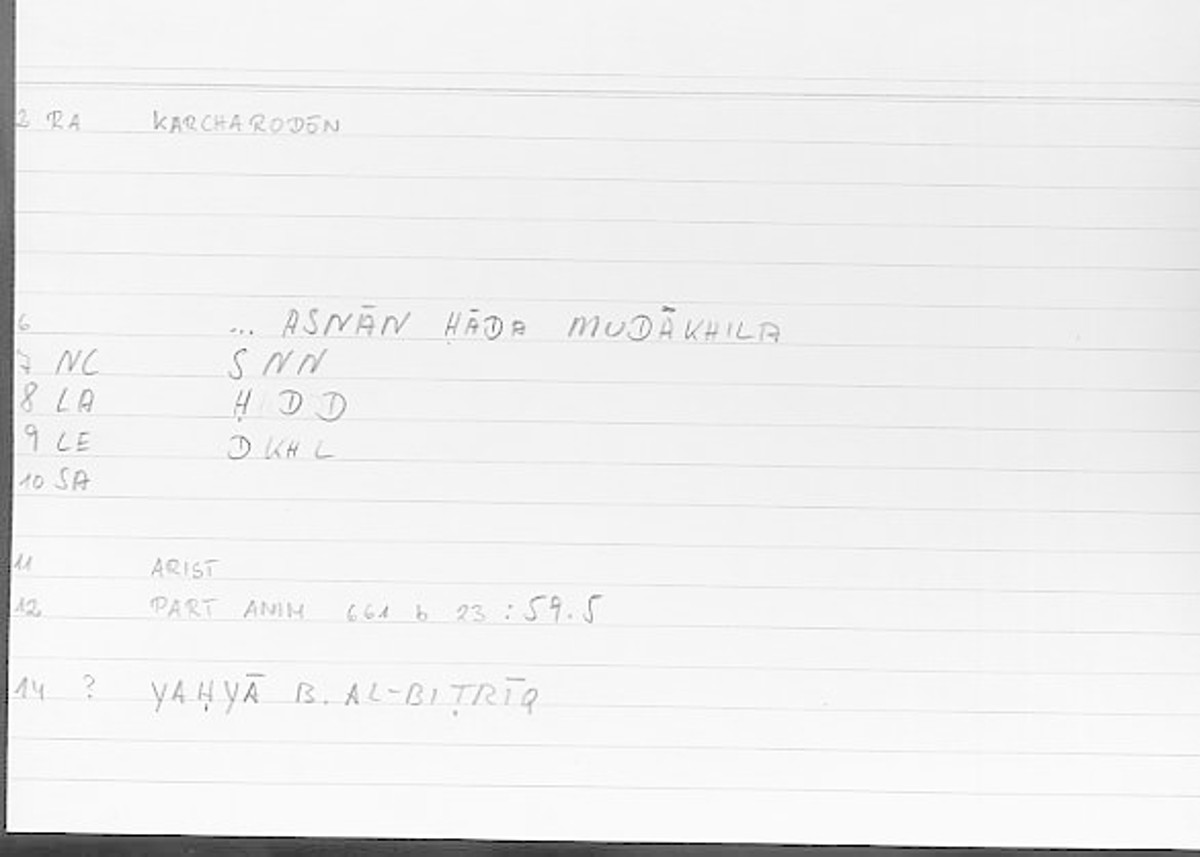 2 RA KARCHARODEN
6 ... ASNĀN ḤĀDA MUDĀKHILA
7 NC SNN
8 LA ḤDD
9 LE DKHL
10 SA
11 ARIST
12 PART ANIM 661 b 23 : 59.5
14 ? YAḤYĀ B. AL-BIṬRĪQ